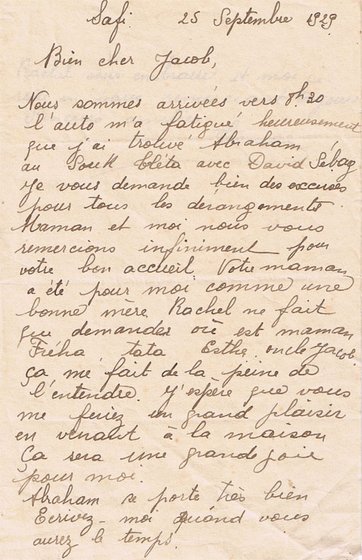 Safi 25 Septembre 1929
Bien cher Jacob,
Nous sommes arrivées vers 8h30
l'auto m'a fatigué heureusement
que j'ai trouvé Abraham
au Souk Tléta avec David Sébag
Je vous demande bien des excuses
pour tous les derangements
Maman et moi nous vous
remercions infiniment pour
votre bon accueil. Votre maman
a été pour moi comme une
bonne mère Rachel ne fait
que demander où est maman
Fréha, tata Esthe, oncle Jacob.
Ça me fait de la peine de
l'entendre. J'espère que vous
me feriez un grand plaisir
en venant à la maison
Ça sera une grande joie
pour moi.
Abraham se porte très bien
Ecrivez-moi quand vous
aurez le temps.